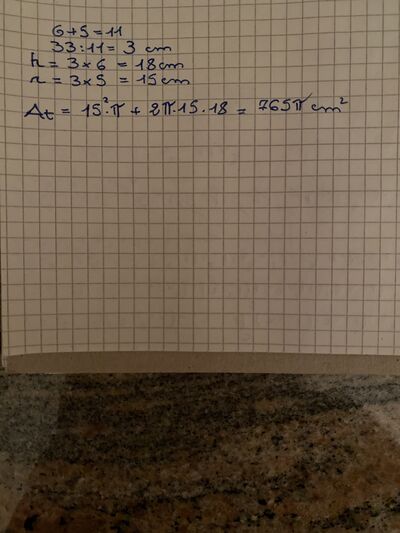 6+5=11
33:11= 3 cm
h = 3×6 = 18cm
r = 3×5 = 15cm
At = 15²·π + 2π·15·18 = 765π cm²